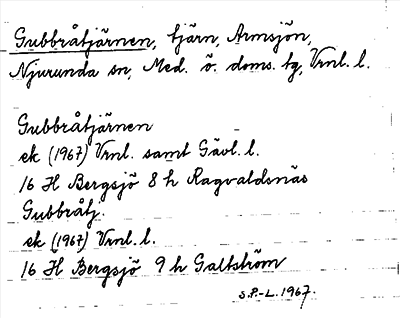 Gubbråtjärnen, tjärn, Armsjön,
Njurunda sn, Med. ö. doms. tg, Vrnl. l.
Gubbråtjärnen
ek (1967) Vrnl. samt Gävl. l.
16 H Bergsjö 8 h Ragvaldsnäs
Gubbråtj.
ek (1967) Vrnl. l.
16 H Bergsjö 9 h Galtström
S.P.-L. 1967.